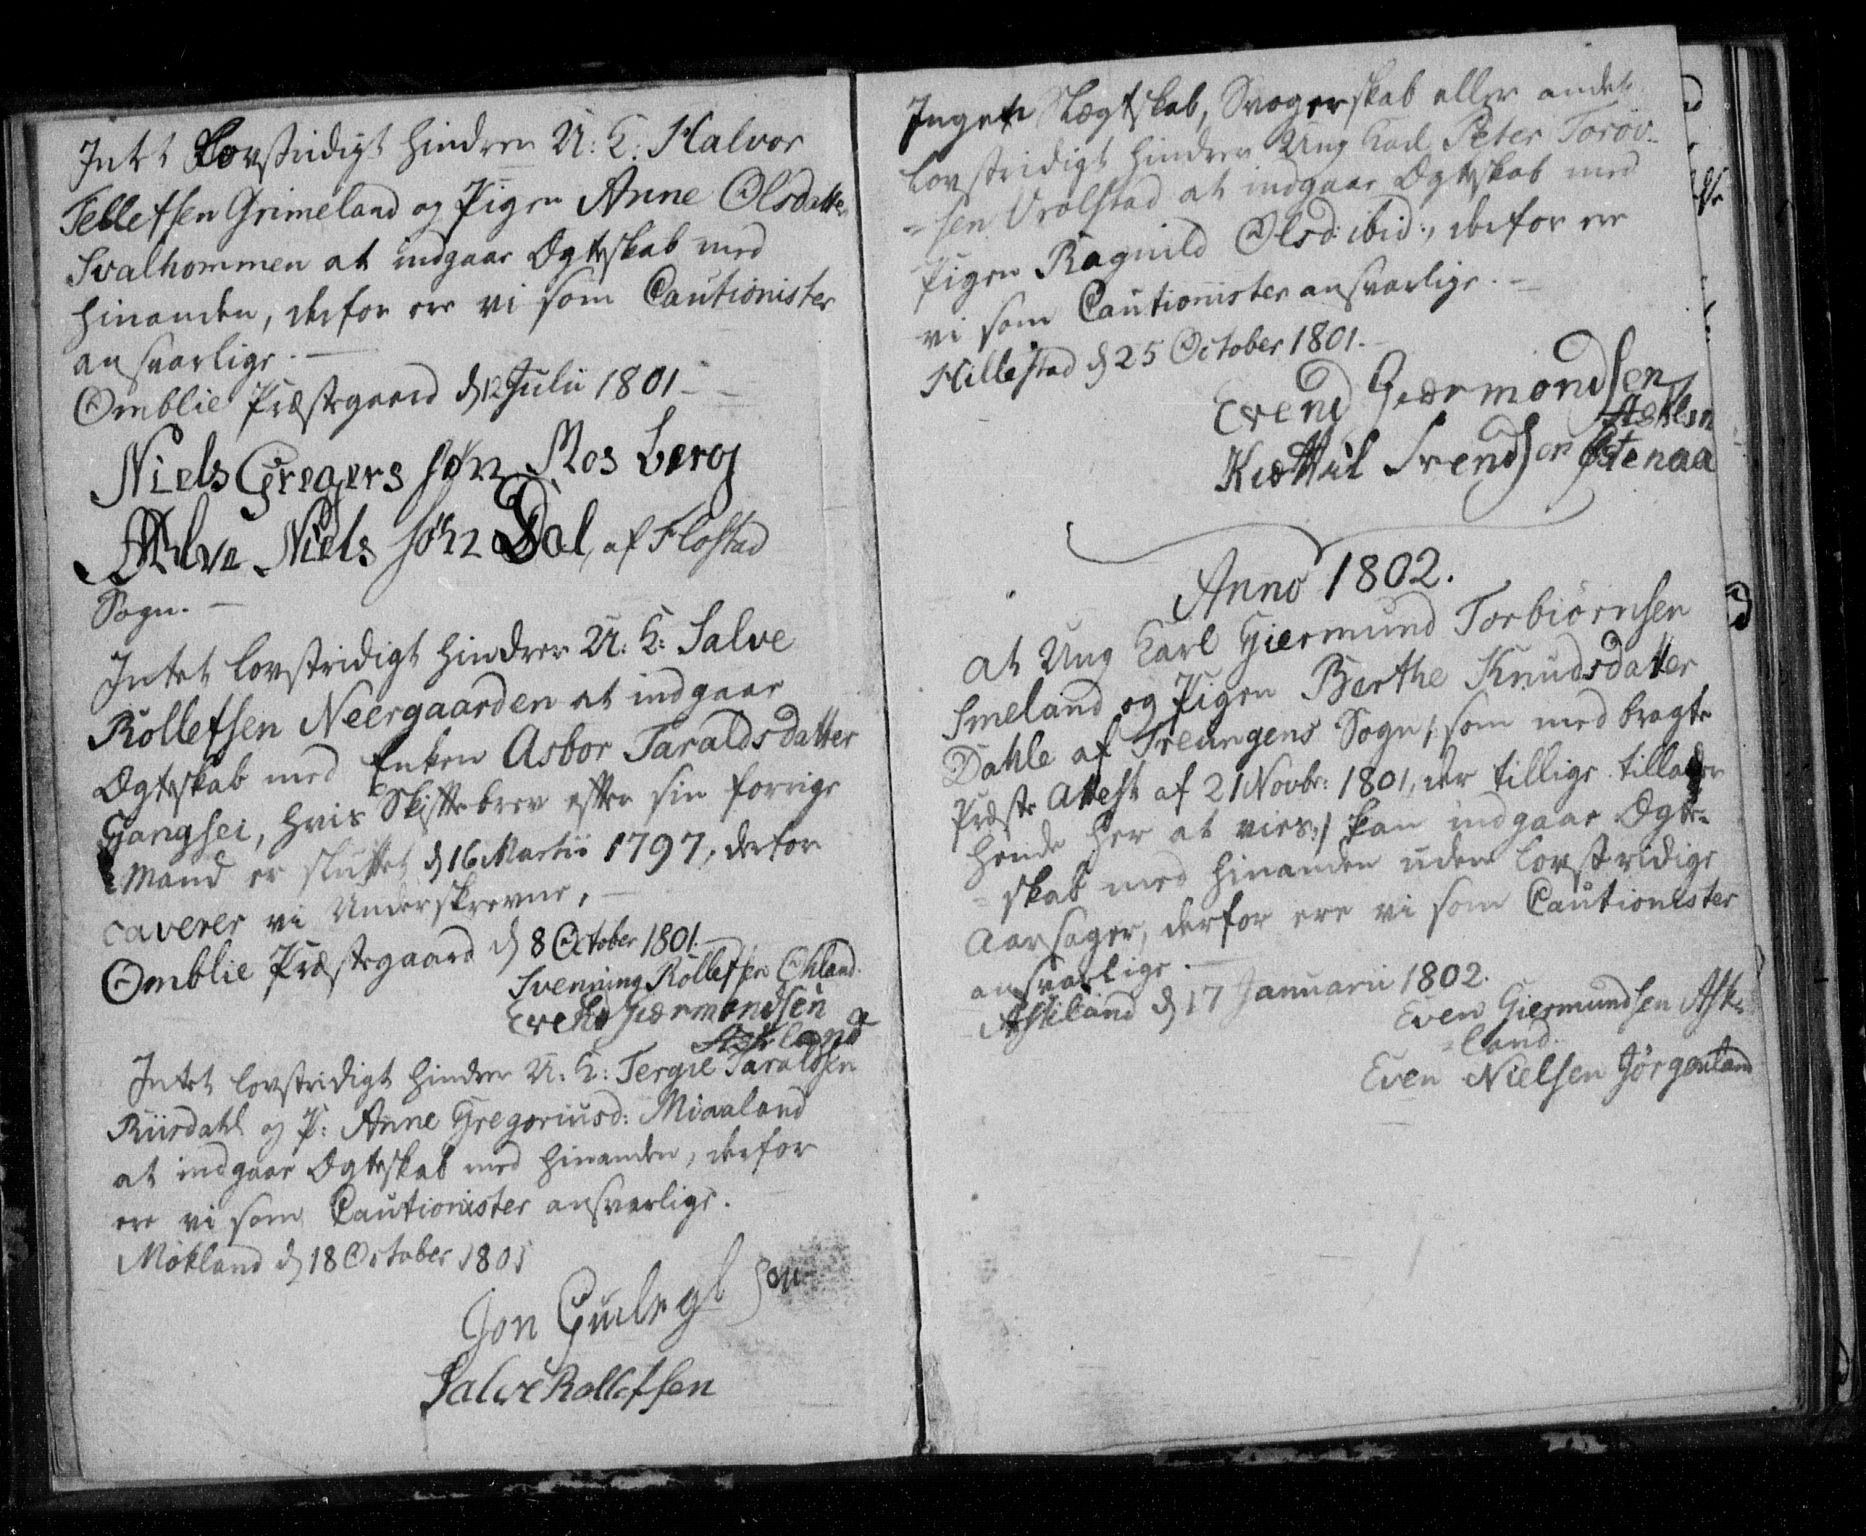 Intet Lovstridigt hindrer U: K: Halvor
Tellefsen Grimeland og Pigen Anne Olsdatter
Svalhommen at indgaae Ægteskab med
hinanden, derfor ere vi som Cautionister
ansvarlige. —
Omblie Præstegaard d 12 Julii 1801 —
Niels Gregers søn Mos berg
Ahlve Niels søhn Dal, af Flostad
Sogn. —
Intet lovstridigt hindrer U: K: Salve
Rollefsen Neergaarden at indgaae
Ægteskab med Enken Asbor Taraldsdatter
Gangsei, hvis Skiftebrev efter sin forrige
Mand er sluttet d 16 Martii 1797, derfor
caverer vi Underskrevne, —
Omblie Præstegaard d 8 October 1801. —
Svenning Rollefsen Ohland.
Evend Giærmondsen
Askland
Intet lovstridigt hindrer U: K: Tergie Taraldsen
Riisdahl og P: Anne Gregoriusd: Miaaland
at indgaae Ægteskab med hinanden, derfor
ere vi som Cautionister ansvarlige.
Mokland d 18 October 1801
Jon Gunlegs søn
Salve Rollefsen
Ingen Slægtskab, Svogerskab eller andet
lovstridigt hindrer Ung Karl Peter Torøv-
-sen Vrolstad at indgaae Ægteskab med
Pigen Ragnild Olsd: ibid:, derfor ere
vi som Cautionister ansvarlige. —
Hillestad d 25 October 1801. —
Evend Giærmondsen
Kiættil Svendsen Østenaa
Anno 1802.
At Ung Karl Giermund Torbiørnsen
Smeland og Pigen Berthe Knudsdatter
Dahle af Treungens Sogn /: som medbragte
Præste Attest af 21 Novbr: 1801, der tillige tillader
hende her at vies :/ kan indgaae Ægte-
-skab med hinanden uden lovstridige
Aarsager, derfor ere vi som Cautionister
ansvarlige. —
Askeland d 17 Januarii 1802.
Even Giermundsen Aske
-land.
Even Nielsen Jørgenland